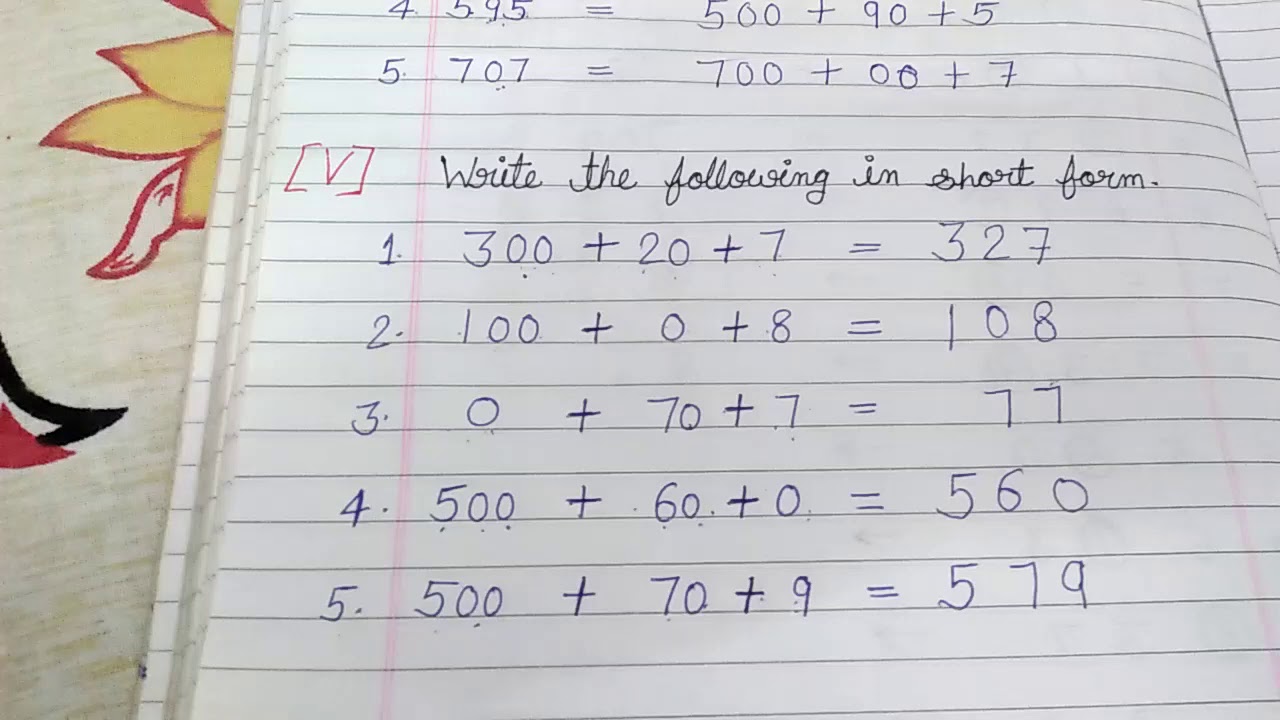 4. 595 = 500 + 90 + 5
5. 707 = 700 + 00 + 7
[V] Write the following in short form.
1. 300 + 20 + 7 = 327
2. 100 + 0 + 8 = 108
3. 0 + 70 + 7 = 77
4. 500 + 60 + 0 = 560
5. 500 + 70 + 9 = 579